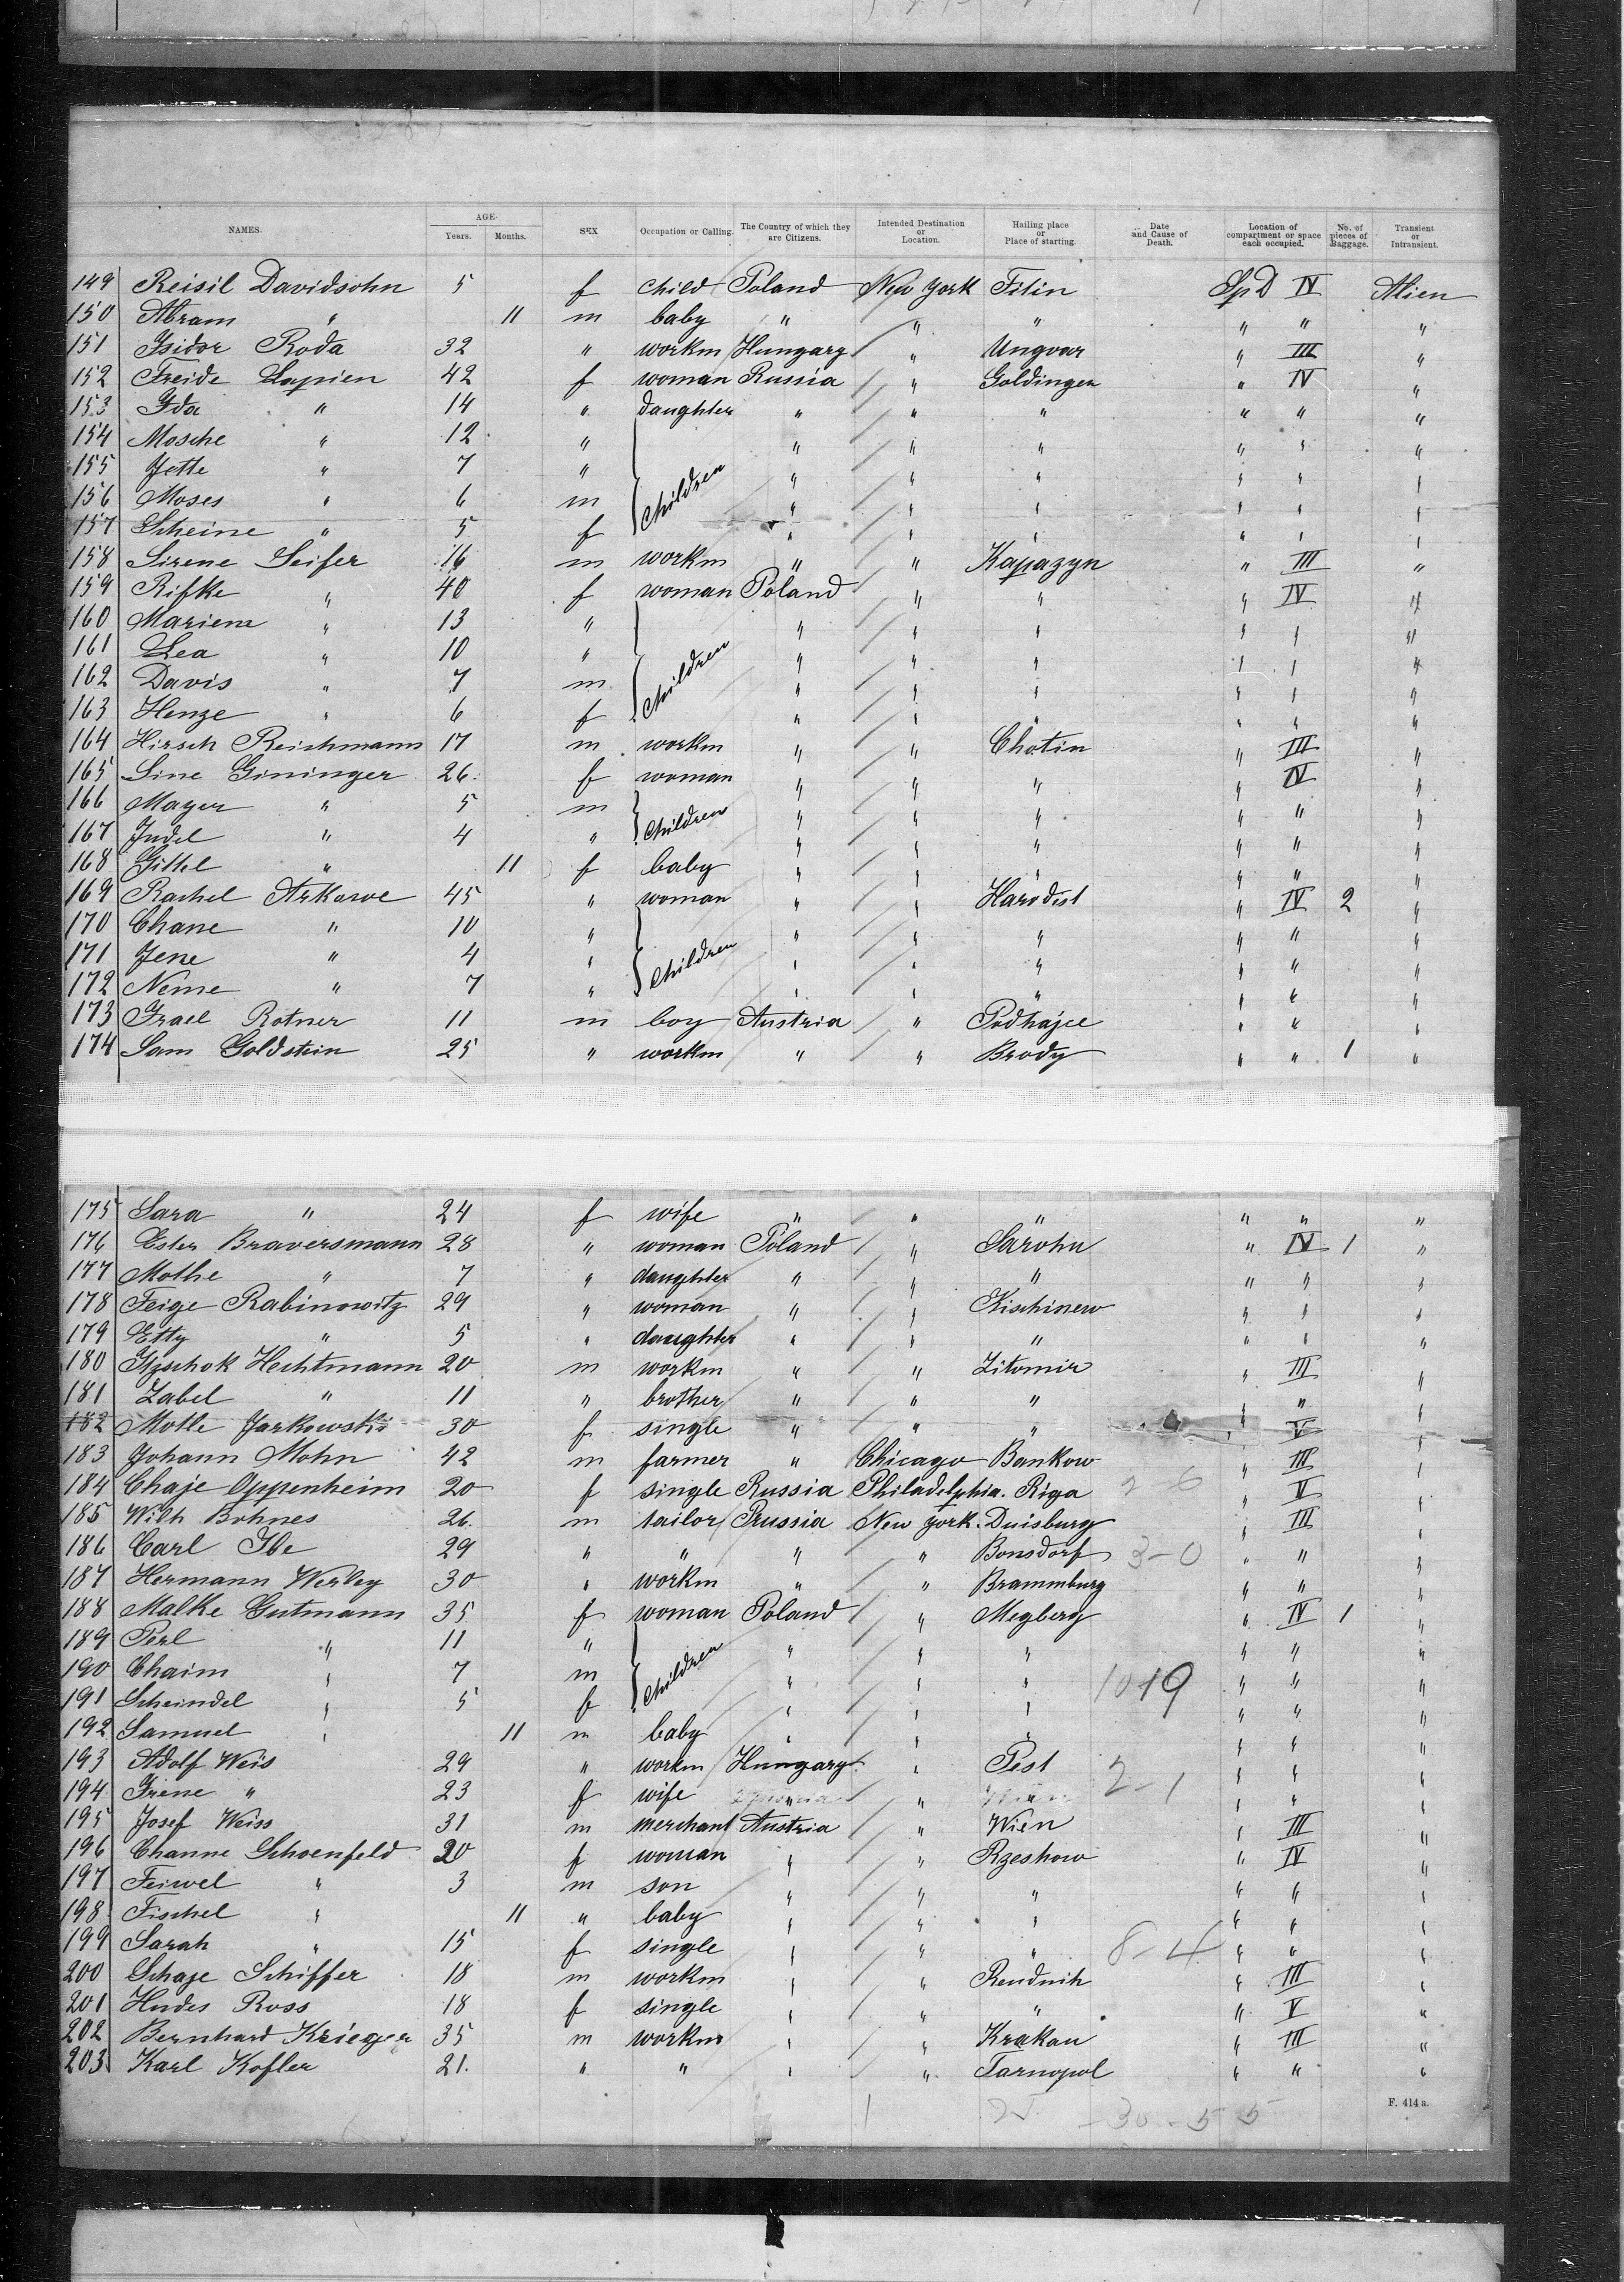 NAMES. AGE. Years. Months. SEX Occupation or Calling. The Country of which they are Citizens. Intended Destination or Location. Hailing place or Place of starting. Date and Cause of Death. Location of compartment or space each occupied. No. of pieces of Baggage. Transient or Intransient.
149 Reisil Davidsohn 5 f child Poland New York Filin SpD IV Alien
150 Abram " 11 m baby " " " " " "
151 Isidor Roda 32 " workm Hungary " Ungvar " III "
152 Freide Lapien 42 f woman Russia " Goldingen " IV "
153 Ida " 14 " daughter " " " " " "
154 Mosche " 12 " children " " " " " "
155 Jette " 7 " " " " " " "
156 Moses " 6 m " " " " " "
157 Scheine " 5 f " " " " " "
158 Sirene Seifer 16 m workm " " Kapazyn " III "
159 Rifke " 40 f woman Poland " " " IV "
160 Mariem " 13 " children " " " " " "
161 Lea " 10 " " " " " " "
162 Davis " 7 m " " " " " "
163 Henze " 6 f " " " " " "
164 Hirsch Reichmann 17 m workm " " Chotin " III "
165 Sine Gininger 26 f woman " " " " IV "
166 Mayer " 5 m children " " " " " "
167 Judel " 4 " " " " " " "
168 Gittel " 11 f baby " " " " " "
169 Rachel Arkowe 45 " woman " " Harodist " IV 2 "
170 Chane " 10 " children " " " " " "
171 Jene " 4 " " " " " " "
172 Neme " 7 " " " " " " "
173 Israel Rotner 11 m boy Austria " Podhajce " " "
174 Sam Goldstein 25 " workm " " Brody " " 1 "
175 Sara " 24 f wife " " " " " "
176 Ester Braversmann 28 " woman Poland " Sarohu " IV 1 "
177 Mothe " 7 " daughter " " " " " "
178 Feige Rabinowitz 29 " woman " " Kischinew " " "
179 Etty " 5 " daughter " " " " " "
180 Itzschok Hechtmann 20 m workm " " Zitomir " III "
181 Zabel " 11 " brother " " " " " "
182 Motle Jarkowski 30 f single " " " " V "
183 Johann Mohn 42 m farmer " Chicago Bankow " III "
184 Chaje Oppenheim 20 f single Russia Philadelphia. Riga 2-6 " V "
185 Wilh Bohnes 26 m tailor Prussia New York. Duisburg " III "
186 Carl Ibe 29 " " " " Bonsdorf 3-0 " " "
187 Hermann Werley 30 " workm " " Brammburg " " "
188 Malke Gutmann 35 f woman Poland " Megberg " IV 1 "
189 Perl " 11 " children " " " " " "
190 Chaim " 7 m " " " " " "
191 Scheindel " 5 f " " " 1019 " " "
192 Samuel " 11 m baby " " " " " "
193 Adolf Weis 29 " workm Hungary " Pest " " "
194 Irene " 23 f wife " " " 2-1 " " "
195 Josef Weiss 31 m merchant Austria " Wien " III "
196 Channe Schoenfeld 20 f woman " " Rzeshow " IV "
197 Feiwel " 3 m son " " " " " "
198 Fischel " 11 " baby " " " " " "
199 Sarah " 15 f single " " " 8-4 " " "
200 Schaje Schiffer 18 m workm " " Rendnih " III "
201 Hudes Ross 18 f single " " " " V "
202 Bernhard Krieger 35 m workm " " Krakau " III "
203 Karl Kofler 21 " " " " Tarnopol " " "
F. 414 a.